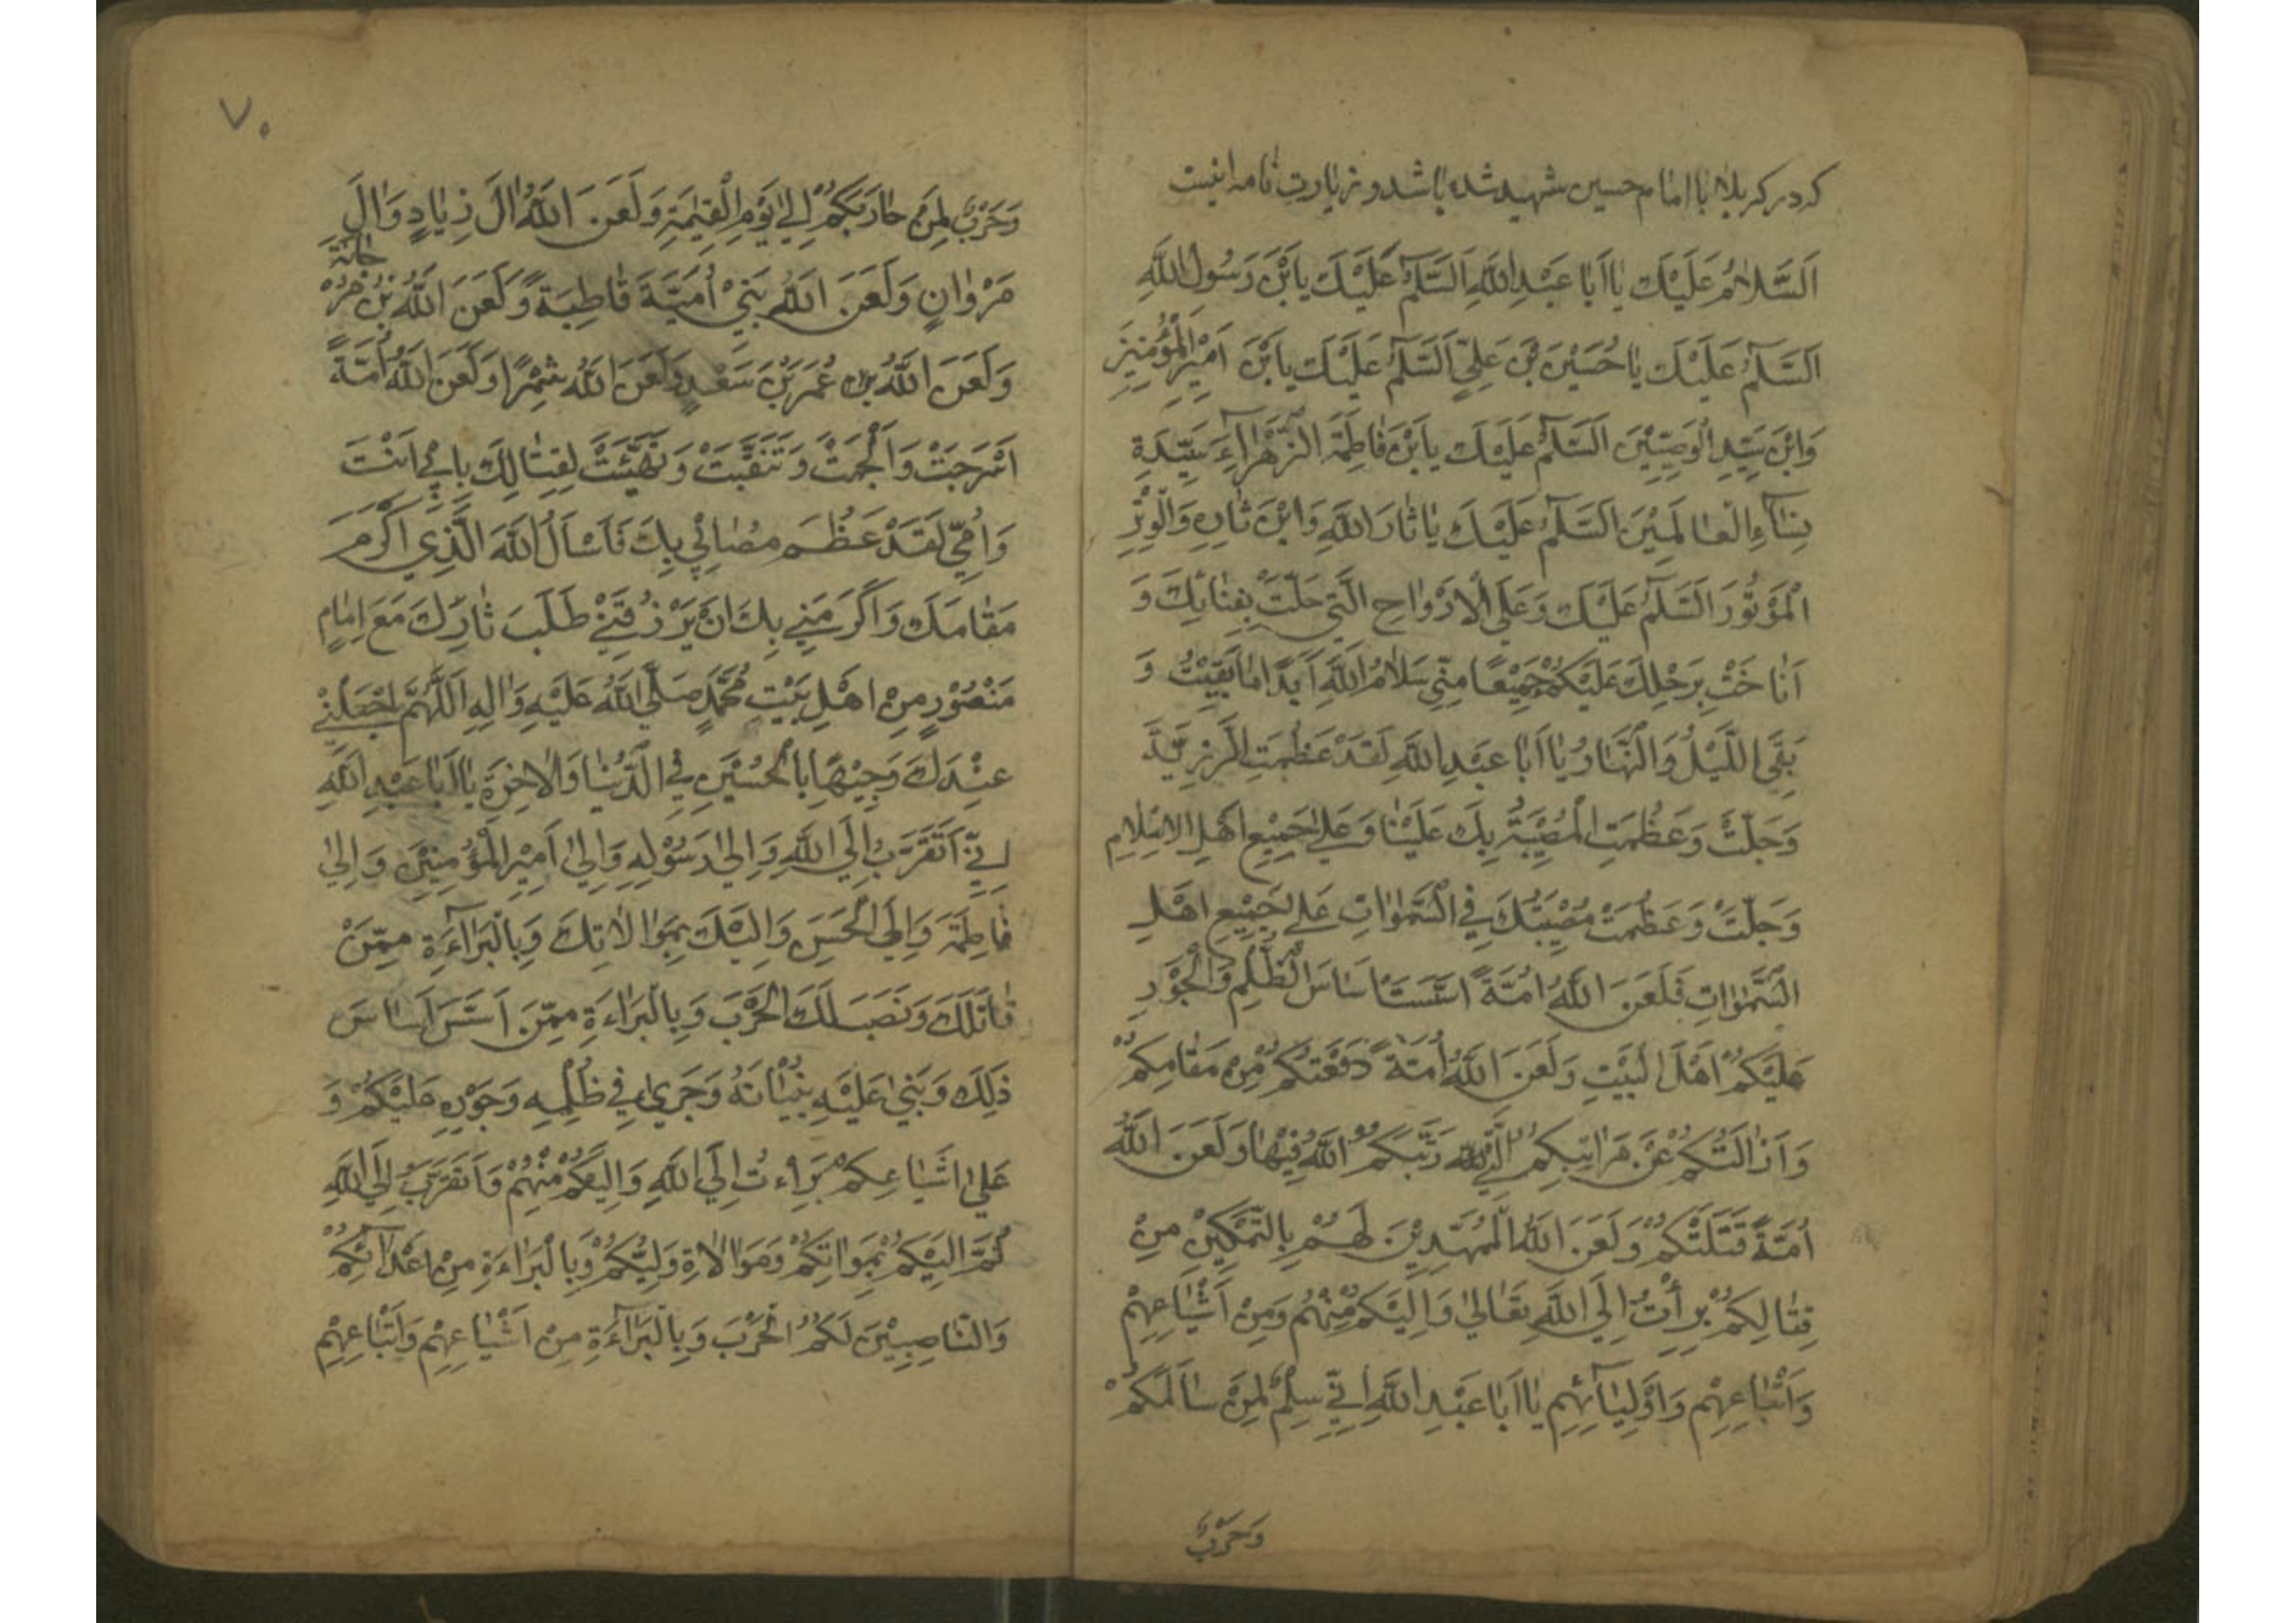 كه در كربلا با امام حسين شهيد شده باشد و زيارت نامه اينست
اَلسَّلامُ عَلَيْكَ يٰا اَبٰا عَبْدِ اللهِ اَلسَّلٰمُ عَلَيْكَ يابْنَ رَسُولِ اللهِ
اَلسَّلٰمُ عَلَيْكَ يٰا حُسَيْنَ بْنَ عَلِيٍّ اَلسَّلٰمُ عَلَيْكَ يابْنَ اَمِيْرِ الْمُؤْمِنِيْنَ
وَابْنَ سَيِّدِ الْوَصِيِّيْنَ اَلسَّلٰمُ عَلَيْكَ يابْنَ فٰاطِمَةَ الزَّهْرٰآءِ سَيِّدَةِ
نِسٰآءِ الْعٰالَمِيْنَ اَلسَّلٰمُ عَلَيْكَ يٰا ثٰارَ اللهِ وَابْنَ ثٰارِهِ وَالْوِتْرِ
الْمَوْتُوْرَ اَلسَّلٰمُ عَلَيْكَ وَعَلَى الْاَرْوٰاحِ الَّتِي حَلَّتْ بِفِنٰائِكَ وَ
اَنٰاخَتْ بِرَحْلِكَ عَلَيْكُمْ جَمِيْعًا مِنِّي سَلٰامُ اللهِ اَبَدًا مٰا بَقِيْتُ وَ
بَقَى اللَّيْلُ وَالنَّهٰارُ يٰا اَبٰا عَبْدِ اللهِ لَقَدْ عَظُمَتِ الرَّزِيَّةُ
وَجَلَّتْ وَعَظُمَتِ الْمُصِيْبَةُ بِكَ عَلَيْنٰا وَعَلىٰ جَمِيْعِ اَهْلِ الْاِسْلٰامِ
وَجَلَّتْ وَعَظُمَتْ مُصِيْبَتُكَ فِي السَّمٰوٰاتِ عَلىٰ جَمِيْعِ اَهْلِ
السَّمٰوٰاتِ فَلَعَنَ اللهُ اُمَّةً اَسَّسَتْ اَسٰاسَ الظُّلْمِ وَالْجَوْرِ
عَلَيْكُمْ اَهْلَ الْبَيْتِ وَلَعَنَ اللهُ اُمَّةً دَفَعَتْكُمْ مِنْ مَقٰامِكُمْ
وَاَزٰالَتْكُمْ عَنْ مَرٰاتِبِكُمُ الَّتِي رَتَّبَكُمُ اللهُ فِيْهٰا وَلَعَنَ اللهُ
اُمَّةً قَتَلَتْكُمْ وَلَعَنَ اللهُ الْمُمَهِّدِيْنَ لَهُمْ بِالتَّمْكِيْنِ مِنْ
قِتٰالِكُمْ بَرِأْتُ اِلَى اللهِ تَعٰالىٰ وَاِلَيْكُمْ مِنْهُمْ وَمِنْ اَشْيٰاعِهِمْ
وَاَتْبٰاعِهِمْ وَاَوْلِيٰآئِهِم يٰا اَبٰا عَبْدِ اللهِ اِنِّي سِلْمٌ لِمَنْ سٰالَمَكُمْ
وَحَرْبٌ
٧٠
وَحَرْبٌ لِمَنْ حٰارَبَكُمْ اِلىٰ يَوْمِ الْقِيٰمَةِ وَلَعَنَ اللهُ اٰلَ زِيٰادٍ وَاٰلَ
مَرْوٰانٍ وَلَعَنَ اللهُ بَنِيْ اُمَيَّةَ قٰاطِبَةً وَلَعَنَ اللهُ بْنَ مَرْ
جٰانَةَ
وَلَعَنَ اللهُ بن عُمَرَ بْنَ سَعْدٍ وَلَعَنَ اللهُ شِمْرًا وَلَعَنَ اللهُ اُمَّةً
اَسْرَجَتْ وَاَلْجَمَتْ وَتَنَقَّبَتْ وَتَهَيَّئَتْ لِقِتٰالِكَ بِاَبِيْ اَنْتَ
وَاُمِّي لَقَدْ عَظُمَ مُصٰابِيْ بِكَ فَاَسْاَلُ اللهَ الَّذِي اَكْرَمَ
مَقٰامَكَ وَاَكْرَمَنِي بِكَ اَنْ يَرْزُقَنِيْ طَلَبَ ثٰارِكَ مَعَ اِمٰامٍ
مَنْصُوْرٍ مِنْ اَهْلِ بَيْتِ مُحَمَّدٍ صَلَّى اللهُ عَلَيْهِ وَاٰلِهِ اَللّٰهُمَّ اجْعَلْنِيْ
عِنْدَكَ وَجِيْهًا بِالْحُسَيْنِ فِي الدُّنْيٰا وَالْاٰخِرَةِ يٰا اَبٰا عَبْدِ اللهِ
اِنِّيْ اَتَقَرَّبُ اِلَى اللهِ وَاِلىٰ رَسُوْلِهِ وَاِلىٰ اَمِيْرِ الْمُؤْمِنِيْنَ وَاِلىٰ
فٰاطِمَةَ وَاِلَى الْحَسَنِ وَاِلَيْكَ بِمُوٰالٰاتِكَ وَبِالْبَرٰآءَةِ مِمَّنْ
قٰاتَلَكَ وَنَصَبَ لَكَ الْحَرْبَ وَبِالْبَرٰاءَةِ مِمَّنْ اَسَّسَ اَسٰاسَ
ذٰلِكَ وَبَنىٰ عَلَيْهِ بُنْيٰانَهُ وَجَرىٰ فِي ظُلْمِهِ وَجَوْرِهِ عَلَيْكُمْ وَ
عَلىٰ اَشْيٰاعِكُمْ بَرِاءتُ اِلَى اللهِ وَاِلَيْكُمْ مِنْهُمْ وَاَتَقَرَّبُ اِلَى اللهِ
ثُمَّ اِلَيْكُمْ بِمُوٰاتِكُمْ وَمُوٰالٰاةِ وَلِيِّكُمْ وَبِالْبَرٰاءَةِ مِنْ اَعْدٰآئِكُمْ
وَالنّٰاصِبِيْنَ لَكُمُ الْحَرْبَ وَبِالْبَرٰآءَةِ مِنْ اَشْيٰاعِهِمْ وَاَتْبٰاعِهِمْ